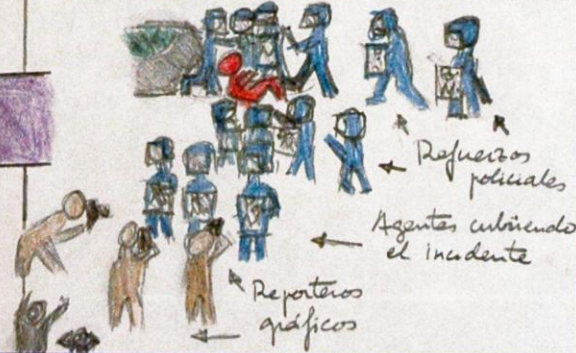 Refuerzos
policiales
Agentes cubriendo
el incidente
Reporteros
gráficos